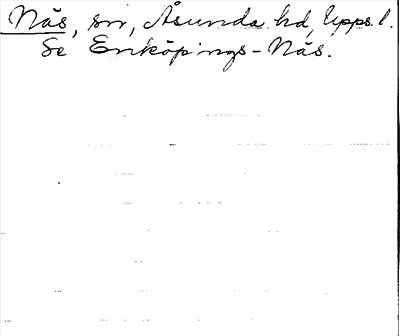 Näs, sn, Åsunda hd, Upps. l.
Se Enköpings-Näs.